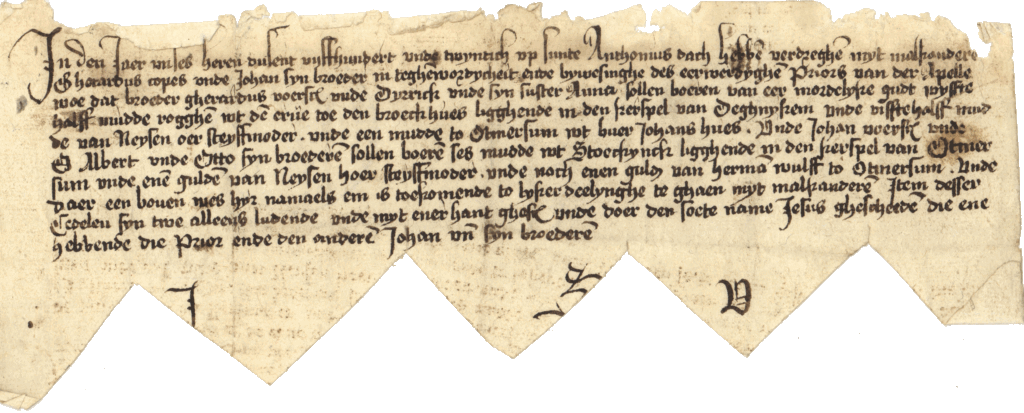 In den Jaer unses heren dusent vyffhundert unde twyntich vp sunte Anthonius dach hebbē verdreghen myt malkandere
Gherardus copes unde Johan syn broeder in teghēwordycheit ende bywesinghe des eerwerdyghe Priors van der Apelle
woe dat broeder gherardus voersck unde Dyrrick unde syn suster Anna sollen boeren van eer moederlyke gudt vyffte
halff mudde rogghē wt dē erue toe den broeckhues ligghende in den kerspel van Deghnyngkem unde vifftehalff mud
de van Neysen oer steyffmoder. unde een mudde to Otmersum wt buer Johans hues. Unde Johan voersck unde
G Albert unde Otto syn broederē sollen boerē ses mudde wt Stoeckynck ligghende in den kerspel van Otmer
sum unde enē guldē van Neysen hoer steyffmoder. unde noch enen guldē van hermā wulff to Otmersum. Unde
daer een boven wes hyr namaels em is toekomende to lyker deelynghe te ghaen myt malkanderē Item desser
Cedelen syn twe alleens ludende unde myt ener hant ghesck unde doer den soete name Jesus ghescheedē die ene
hebbende die Prior ende den anderē Johan vn̄ syn broederē
I S V